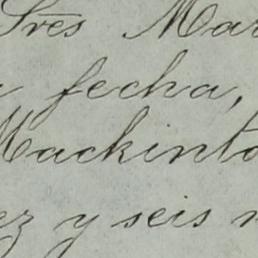 Sres Mar
fecha,
Mackinto
ez y seis